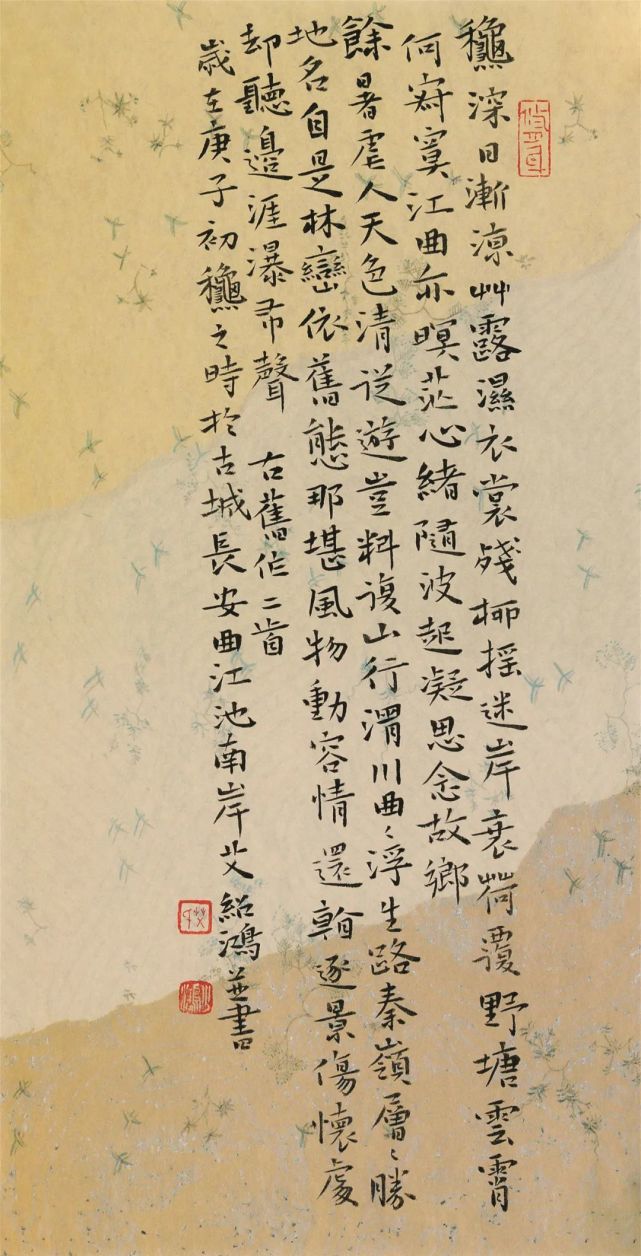 龝深日漸涼艸露濕衣裳殘栁搖迷岸衰荷覆野塘雲霄
何寂寞江曲亦暝茫心緒隨波起凝思念故鄉
餘暑虐人天色清從遊豈料復山行渭川曲〻浮生路秦嶺層〻勝
地名自是林巒依舊態那堪風物動容情還翰逐景傷懷處
却聽邊涯瀑布聲 右舊作二首
歲在庚子初龝之時於古城長安曲江池南岸艾紹鴻並書